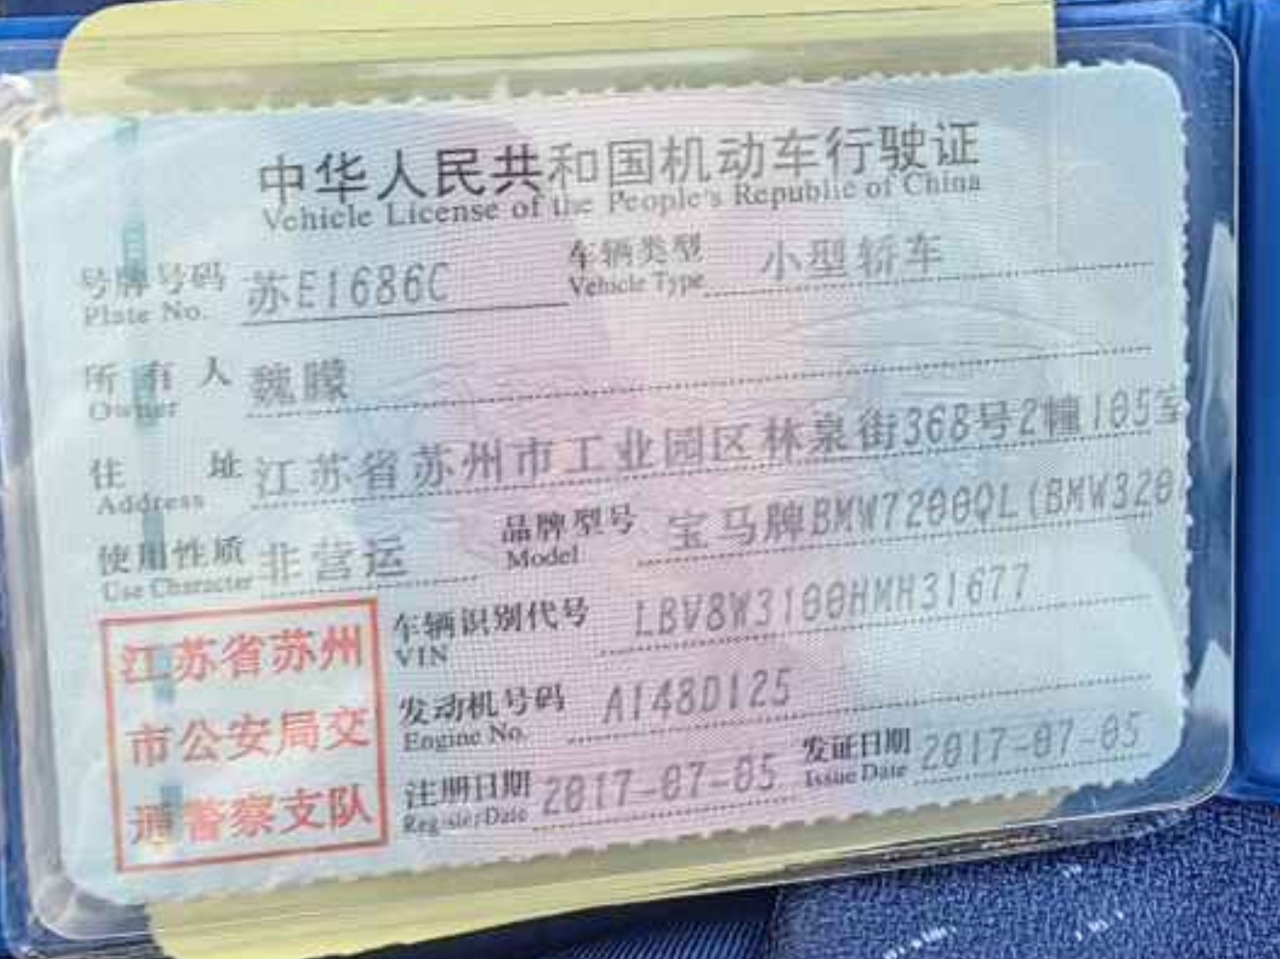 中华人民共和国机动车行驶证
Vehicle License of the People's Republic of China
号牌号码 苏E1686C 车辆类型 小型轿车
Plate No. Vehicle Type
所有人 魏朦
Owner
住址 江苏省苏州市工业园区林泉街368号2幢105室
Address
使用性质 非营运 品牌型号 宝马牌BMW7200QL(BMW320
Use Character Model
车辆识别代号 LBV8W3100HMH31677
VIN
发动机号码 A148D125
Engine No.
注册日期 2017-07-05 发证日期 2017-07-05
Register Date Issue Date
江苏省苏州
市公安局交
通警察支队